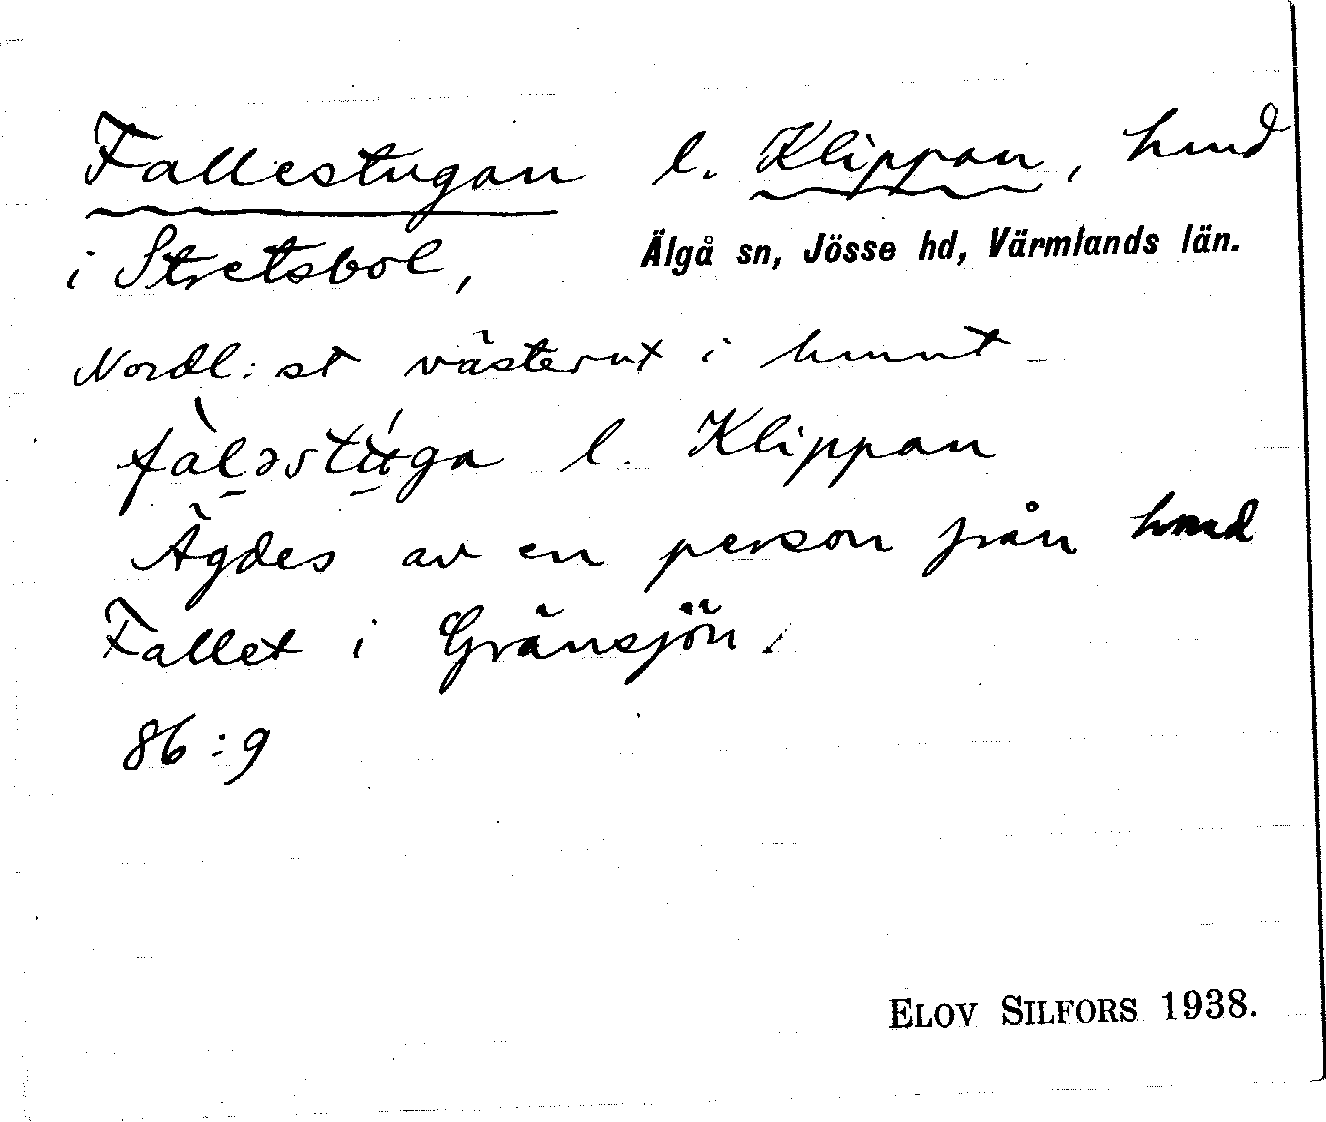 Fallestugan l. Klippan, hmd
i Stretsbol,
Älgå sn, Jösse hd, Värmlands län.
Nordl: st västerut i hmnt -
l. Klippan
Ägdes av en person från hmd
Fallet i Gränsjön.
86:9
ELOV SILFORS 1938.